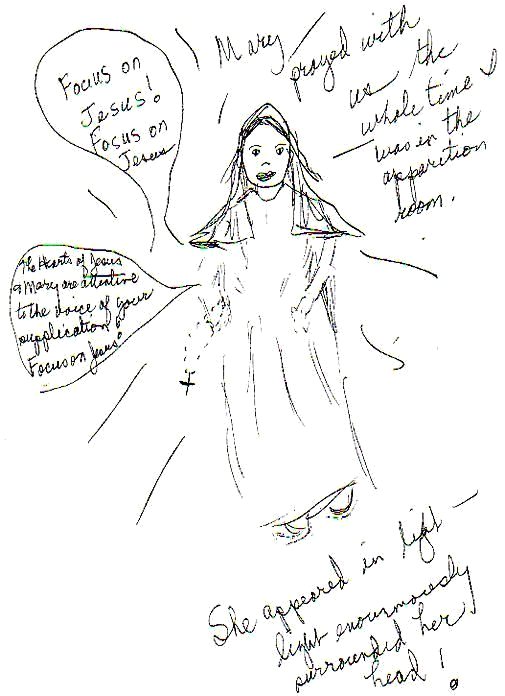 Focus on
Jesus!
Focus on
Jesus
Mary
prayed with
us the
whole time I
was in the
apparition
room.
The Hearts of Jesus
& Mary are attentive
to the voice of your
supplication!
Focus on Jesus!
She appeared in light —
light enourmously
surrounded her
head!